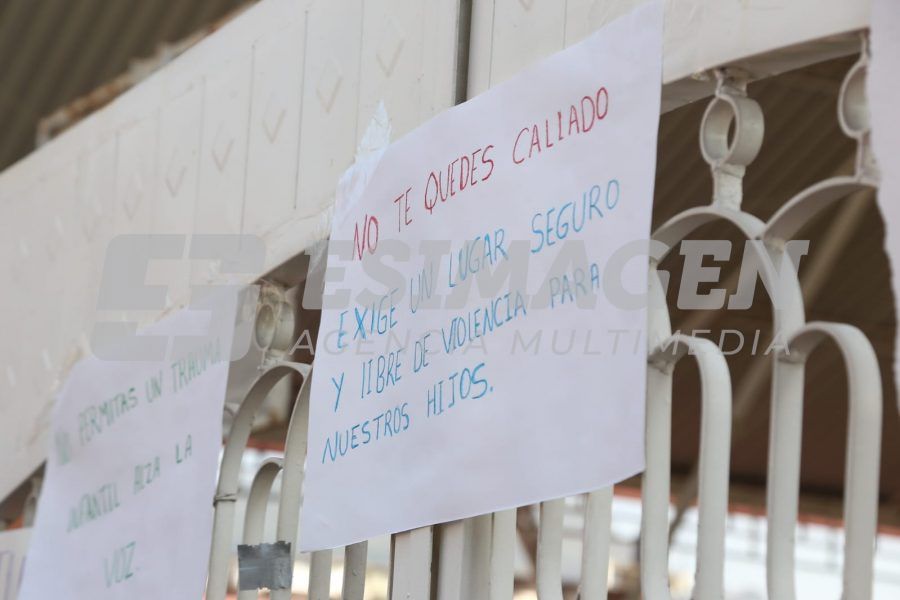 NO TE QUEDES CALLADO
EXIGE UN LUGAR SEGURO
Y LIBRE DE VIOLENCIA PARA
NUESTROS HIJOS.
NO PERMITAS UN TRAUMA
INFANTIL ALZA LA
VOZ.
ESIMAGEN
AGENCIA MULTIMEDIA